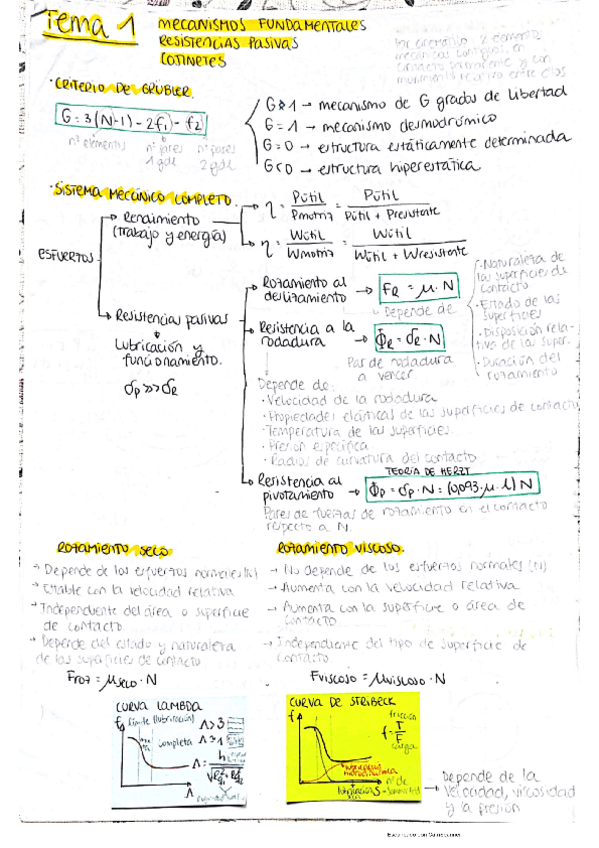 Tema 1
MECANISMOS FUNDAMENTALES
RESISTENCIAS PASIVAS
COJINETES
Par cinemático 2 elementos
mecánicos contiguos, en
contacto permanente y con
movimiento relativo entre ellos
· CRITERIO DE GRÜBLER.
G = 3(N-1) - 2f₁ - f₂
nº elementos
nº pares
1 gdl
nº pares
2 gdl
→ mecanismo de G grados de libertad
G = 1 → mecanismo desmodrómico
G = 0 → estructura estáticamente determinada
G < 0 → estructura hiperestática
· SISTEMA MECÁNICO COMPLETO.
ESFUERZOS
→ Rendimiento
(trabajo y energía)
η = Pútil / Pmotriz = Pútil / Pútil + Presistente
η = Wútil / Wmotriz = Wútil / Wútil + Wresistente
→ Resistencias pasivas
↳ Lubricación y
funcionamiento.
σp >> σR
→ Rozamiento al
deslizamiento → FR = μ · N
↳ Depende de
· Naturaleza de
las superficies de
contacto
· Estado de las
superficies
· Disposición rela-
tiva de las super.
· Duración del
rozamiento
→ Resistencia a la
rodadura → ΦR = σR · N
Par de rodadura
a vencer
Depende de:
· Velocidad de la rodadura
· Propiedades elásticas de las superficies de contacto
· Temperatura de las superficies
· Presión específica
· Radios de curvatura del contacto
→ Resistencia al
pivotamiento
TEORÍA DE HERZT
→ Φp = σp · N = (0,093 · μ · l) N
Pares de fuerzas de rozamiento en el contacto
respecto a N.
ROZAMIENTO SECO
→ Depende de los esfuerzos normales (N)
→ Estable con la velocidad relativa
→ Independiente del área o superficie
de contacto
→ Depende del estado y naturaleza
de las superficies de contacto
Froz = μseco · N
ROZAMIENTO VISCOSO.
→ No depende de los esfuerzos normales (N)
→ Aumenta con la velocidad relativa
→ Aumenta con la superficie o área de
contacto
→ Independiente del tipo de superficie de
contacto
Fviscoso = μviscoso · N
CURVA LAMBDA
f
Límite (lubricación)
Λ > 3
completa
Λ
CURVA DE STRIBECK
f
fricción
f = T / F
carga
→ Depende de la
velocidad, viscosidad
y la presión
Escaneado con CamScanner